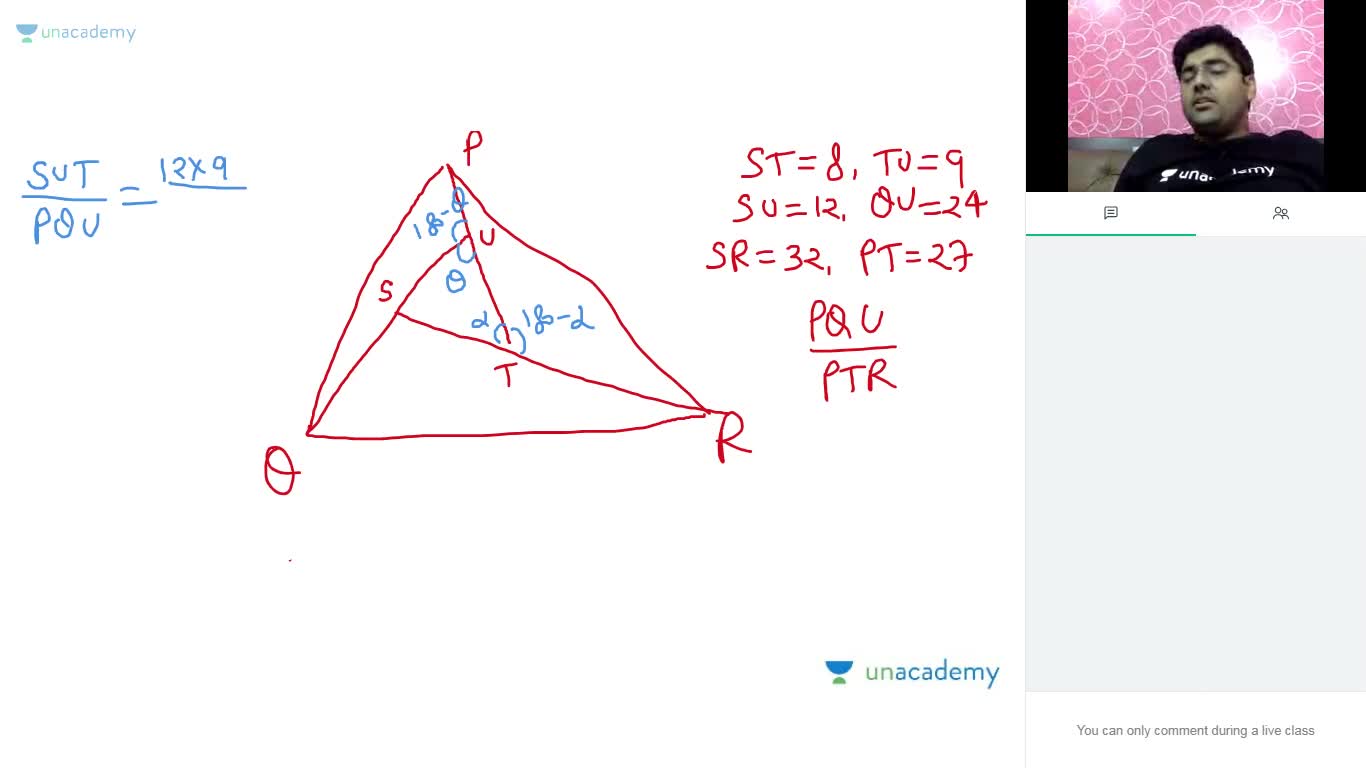 unacademy
SUT
PQU
= 12×9
P
180-θ
U
θ
S
α
180-α
T
Q
R
ST=8, TU=9
SU=12, QU=24
SR=32, PT=27
PQU
PTR
unacademy
una demy
You can only comment during a live class